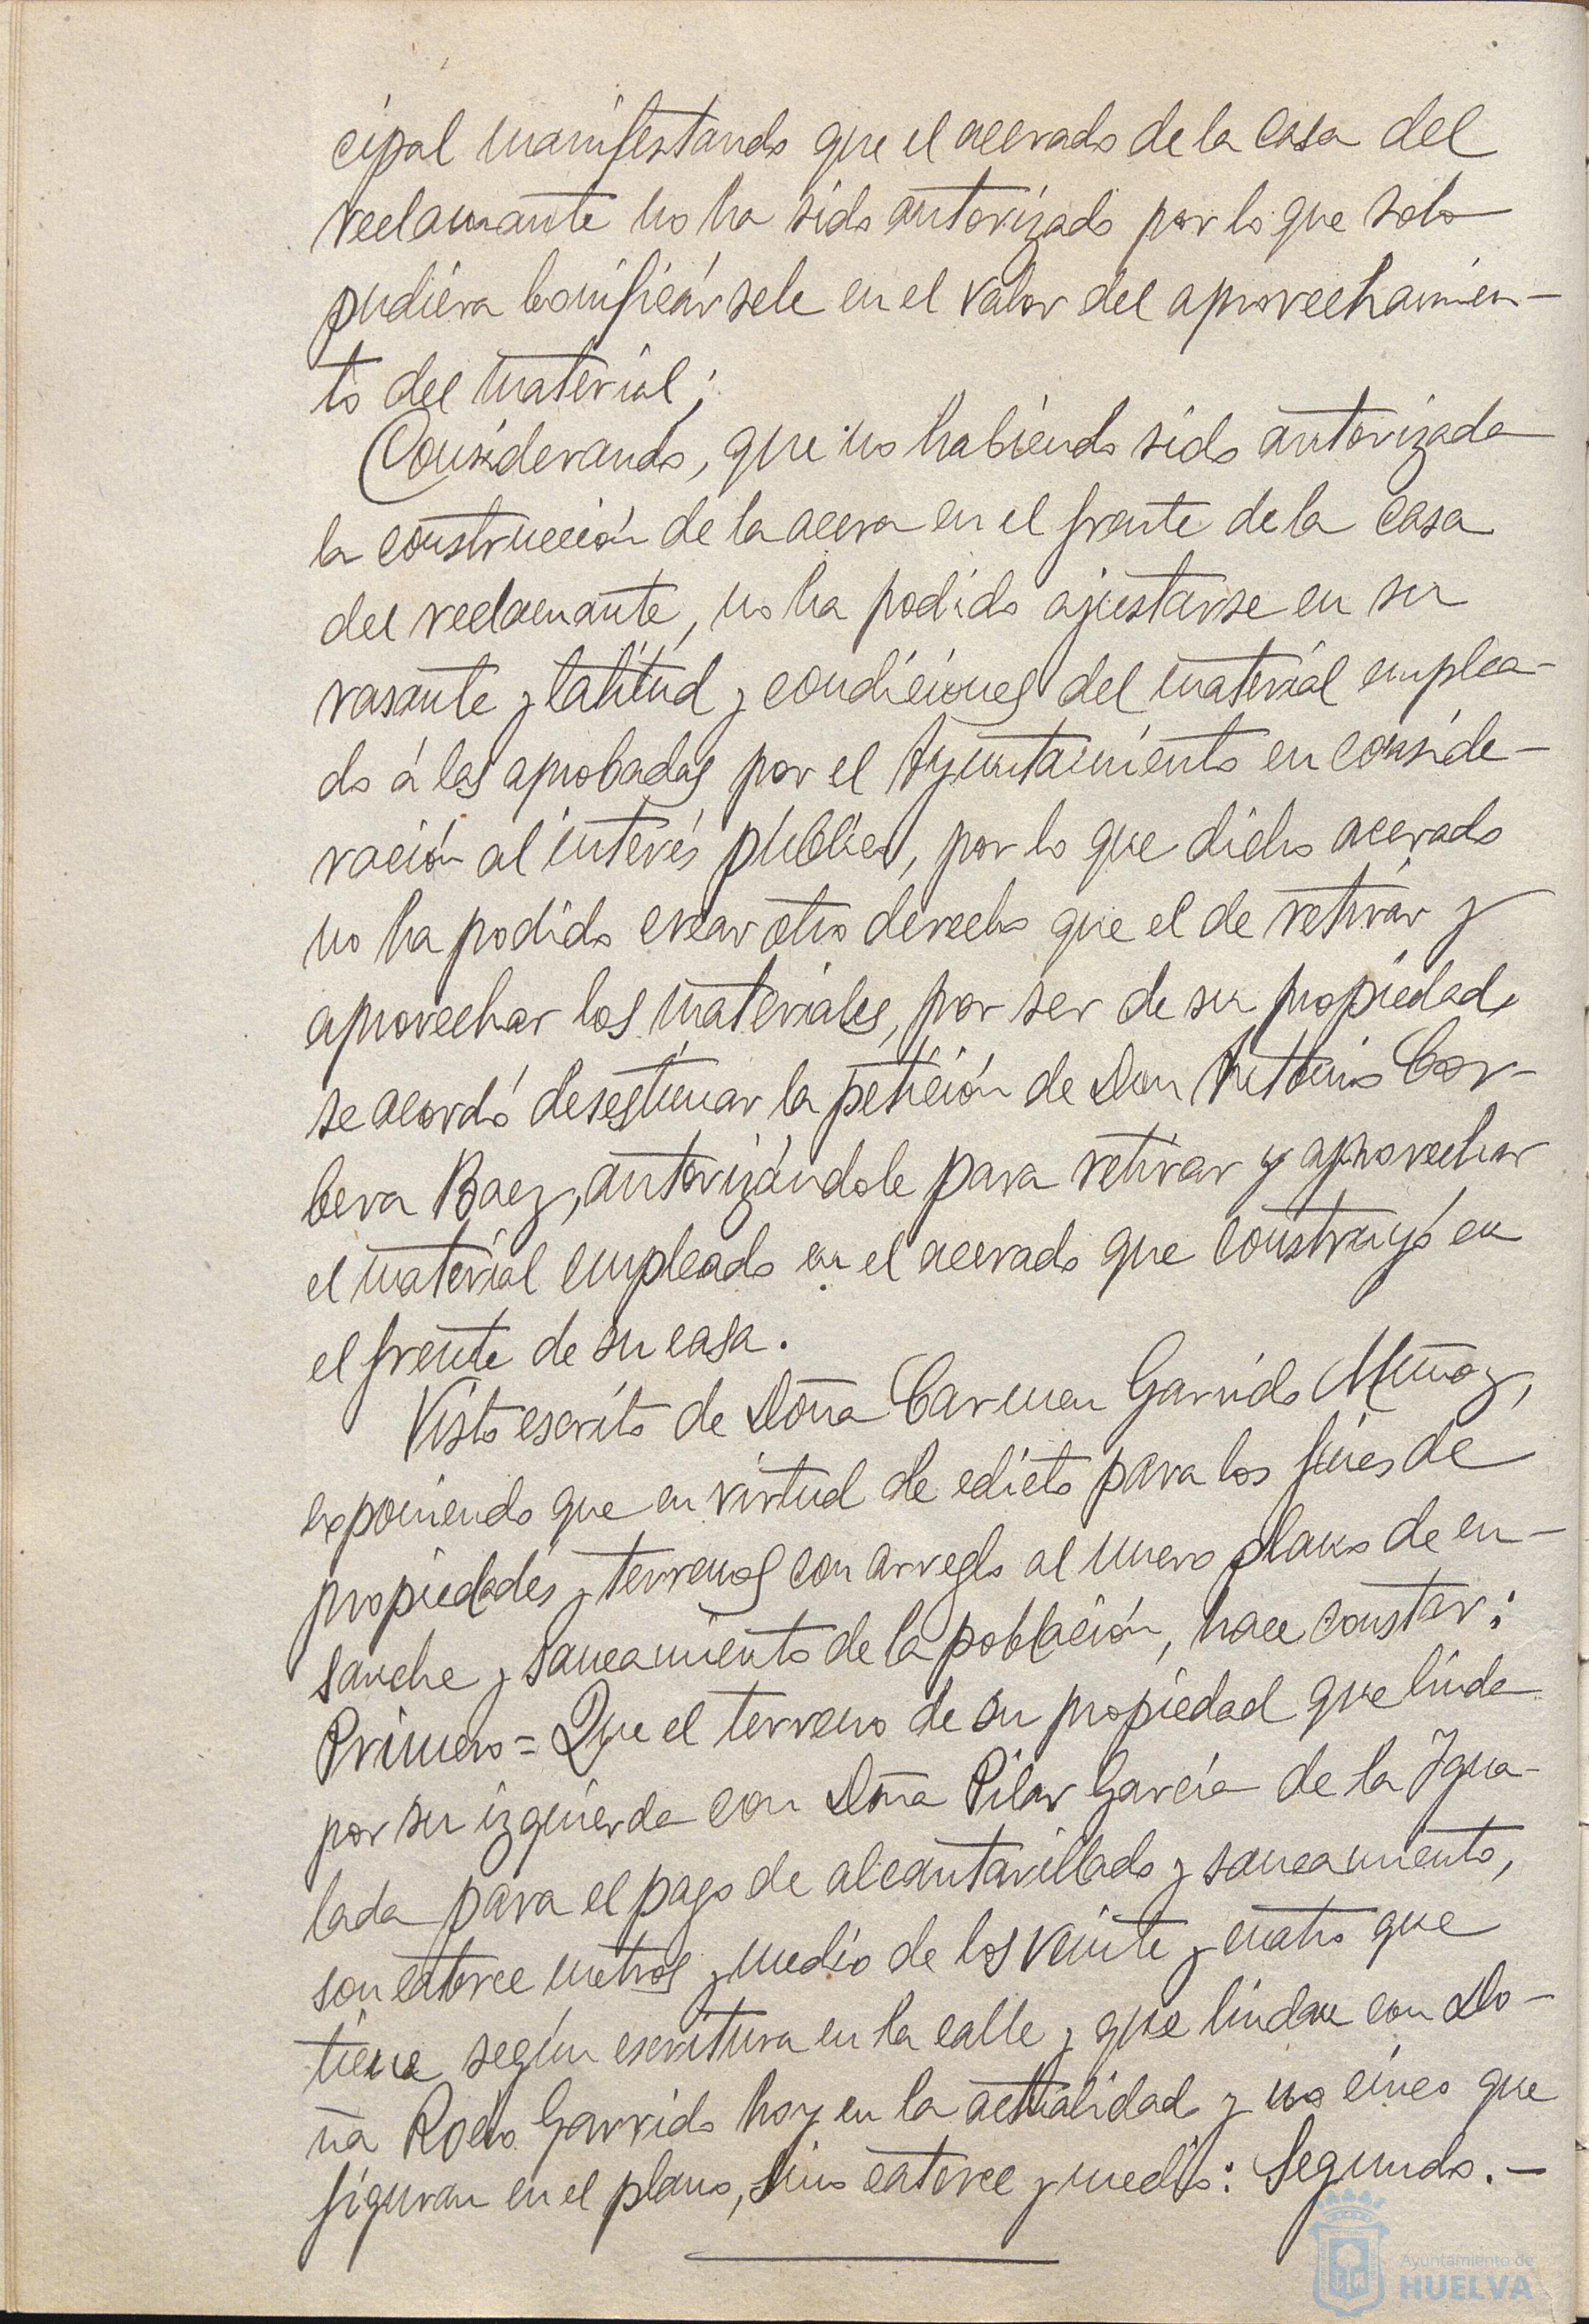 cipal manifestando que el acerado de la casa del
reclamante no ha sido autorizado por lo que solo
pudiera bonificársele en el valor del aprovechamien-
to del material;
Considerando, que no habiendo sido autorizada
la construcción de la acera en el frente de la casa
del reclamante, no ha podido ajustarse en su
rasante y latitud y condiciones del material emplea-
do á las aprobadas por el Ayuntamiento en conside-
ración al interés público, por lo que dicho acerado
no ha podido crear otro derecho que el de retirar y
aprovechar los materiales, por ser de su propiedad,
se acordó desestimar la petición de Don Antonio Cor-
bera Baez, autorizándole para retirar y aprovechar
el material empleado en el acerado que construyó en
el frente de su casa.
Visto escrito de Doña Carmen Garrido Muñoz,
exponiendo que en virtud de edicto para los fines de
propiedades y terrenos con arreglo al nuevo plano de en-
sanche y saneamiento de la población, hace constar:
Primero = Que el terreno de su propiedad que linda
por su izquierda con Doña Pilar García de la Igua-
lada para el pago de alcantarillado y saneamiento,
son catorce metros y medio de los veinte y cuatro que
tiene según escritura en la calle y que lindan con Do-
ña Rocío Garrido hoy en la actualidad y no cinco que
figuran en el plano, sino catorce y medio: Segundo.-
Ayuntamiento de
HUELVA